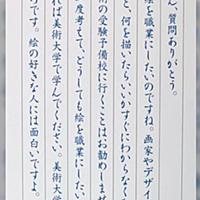 ん、質問ありがとう。
絵を職業にしたいのですね。画家やデザイ
と、何を描いたらいいかすぐにわからなく
術の受験予備校に行くことはお勧めしませ
度考えて、どうしても絵を職業にしたい
れば美術大学で学んでください。美術大
っです。絵の好きな人には面白いですよ。